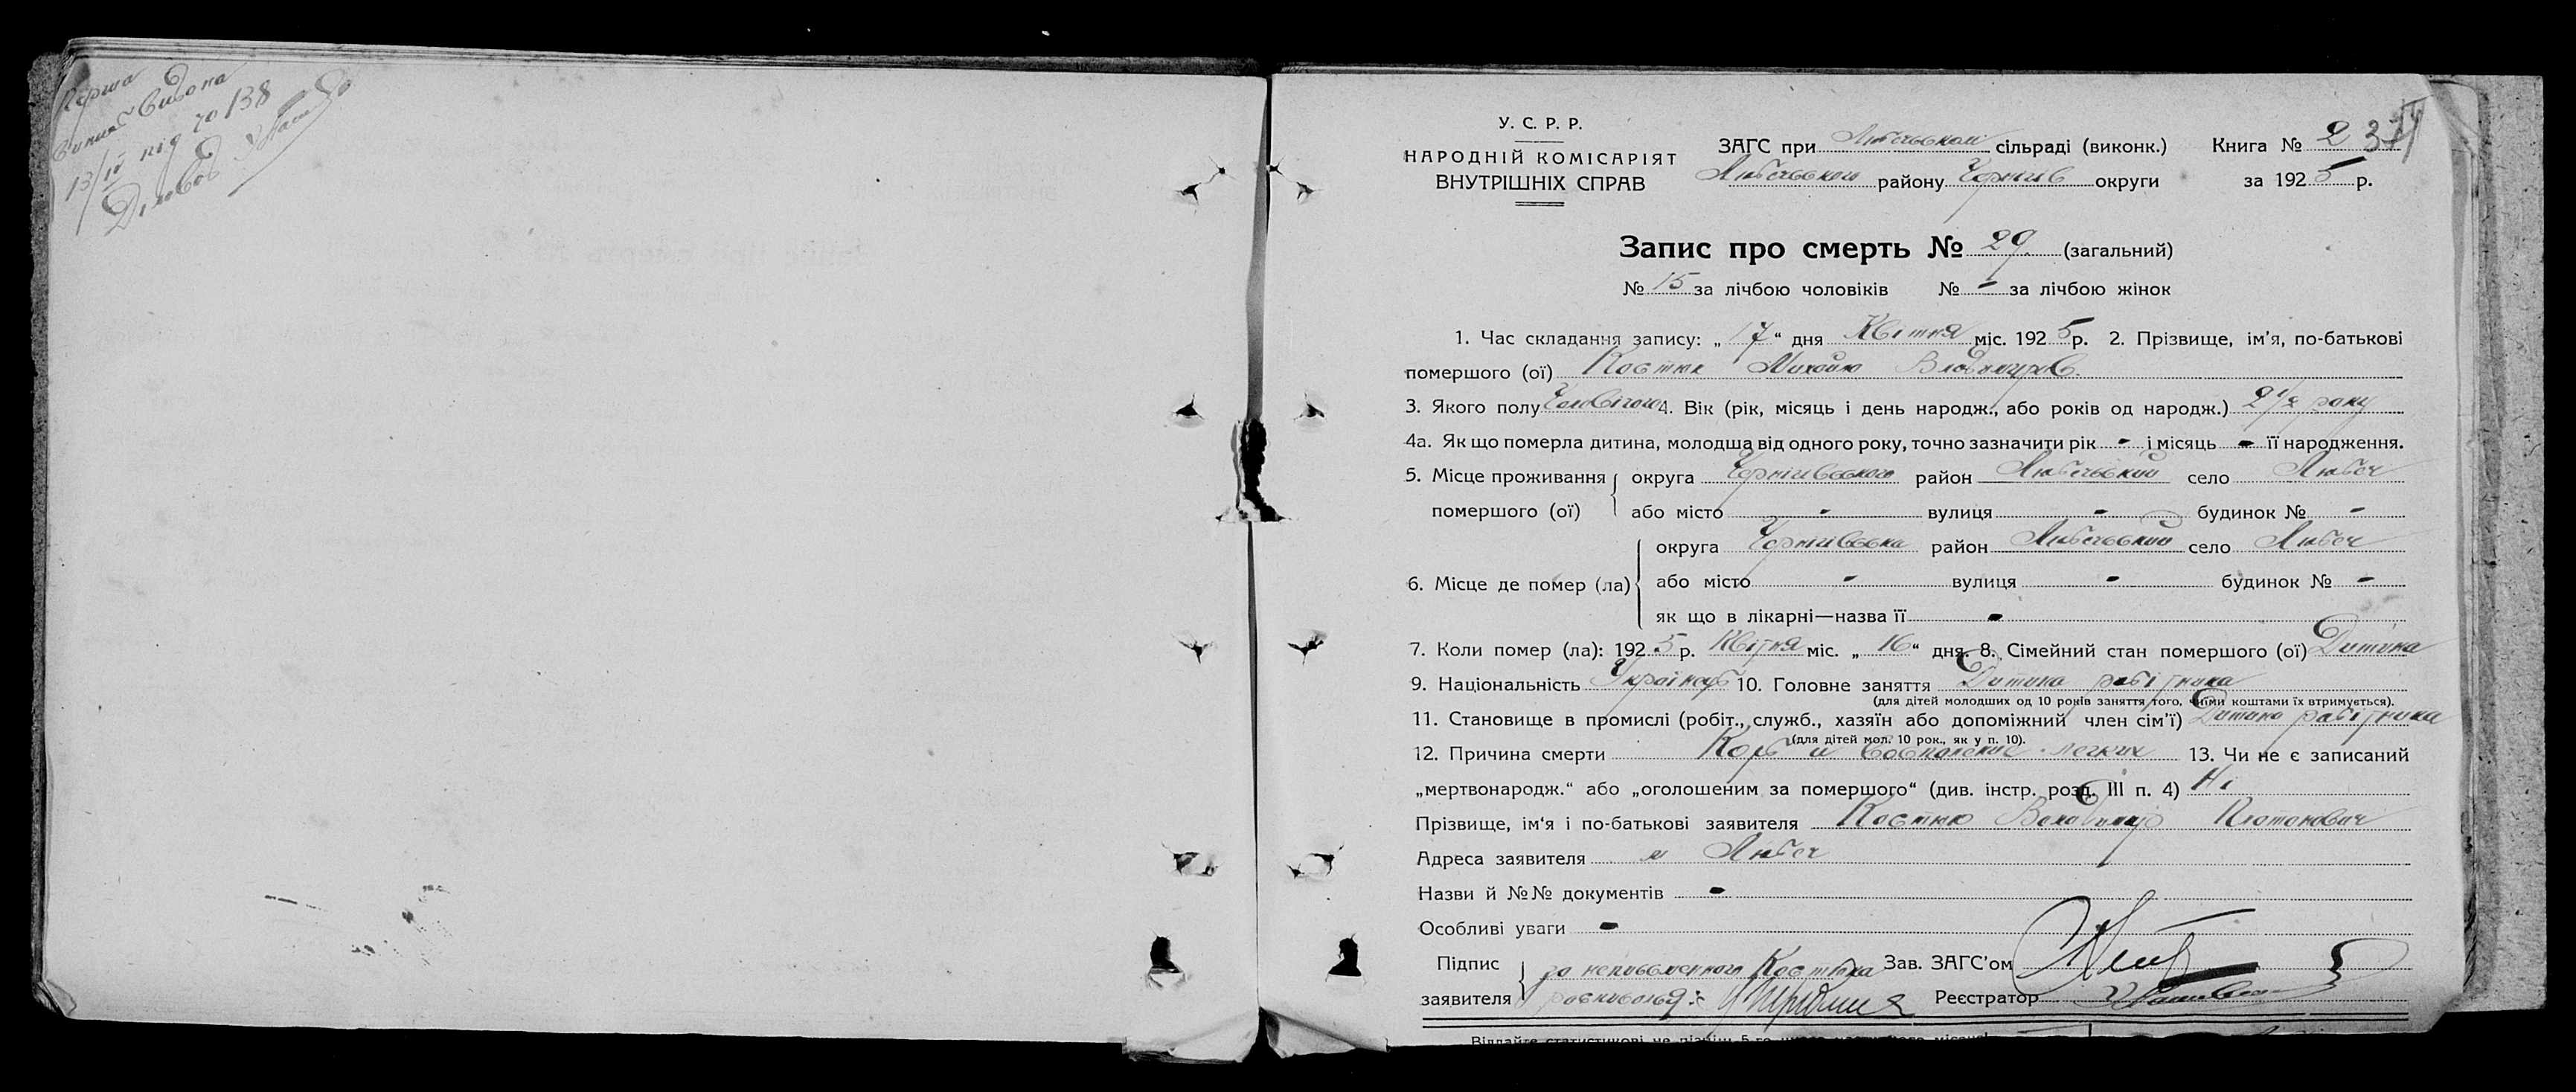 Перша
13/IV під № 138
У. С. Р. Р.
НАРОДНІЙ КОМІСАРІЯТ
ВНУТРІШНІХ СПРАВ
ЗАГС при Любечській сільраді (виконк.) Книга № 2
Любечського району Черніг округи за 1925 р.
Запис про смерть № 29 (загальний)
№ 15 за лічбою чоловіків № - за лічбою жінок
1. Час складання запису: „17“ дня Квітня міс. 1925 р. 2. Прізвище, ім’я, по-батькові
помершого (ої) Костюк Михайло Володимиров.
3. Якого полу Чоловічого 4. Вік (рік, місяць і день народж., або років од народж.) 2 1/2 року
4а. Як що померла дитина, молодша від одного року, точно зазначити рік - і місяць - її народження.
5. Місце проживання помершого (ої) округа Чернігівського район Любечьский село Любеч
або місто - вулиця - будинок № -
6. Місце де помер (ла) округа Чернігівська район Любечьский село Любеч
або місто - вулиця - будинок № -
як що в лікарні—назва її -
7. Коли помер (ла): 1925 р. Квітня міс. „16“ дня. 8. Сімейний стан помершого (ої) Дитина
9. Національність Українець 10. Головне заняття Дитина робітника
(для дітей молодших од 10 років заняття того, чиїми коштами їх втримується).
11. Становище в промислі (робіт., служб., хазяїн або допоміжний член сім’ї) Дитина робітника
(для дітей мол. 10 рок., як у п. 10).
12. Причина смерти Корь и воспаление легких 13. Чи не є записаний
„мертвонародж.“ або „оголошеним за помершого“ (див. інстр. розд. III п. 4) Ні
Прізвище, ім‘я і по-батькові заявителя Костюк Володимир Платонович
Адреса заявителя м Любеч
Назви й №№ документів -
Особливі уваги -
Підпис заявителя за неписьменного Костюка Зав. ЗАГС’ом
Реєстратор